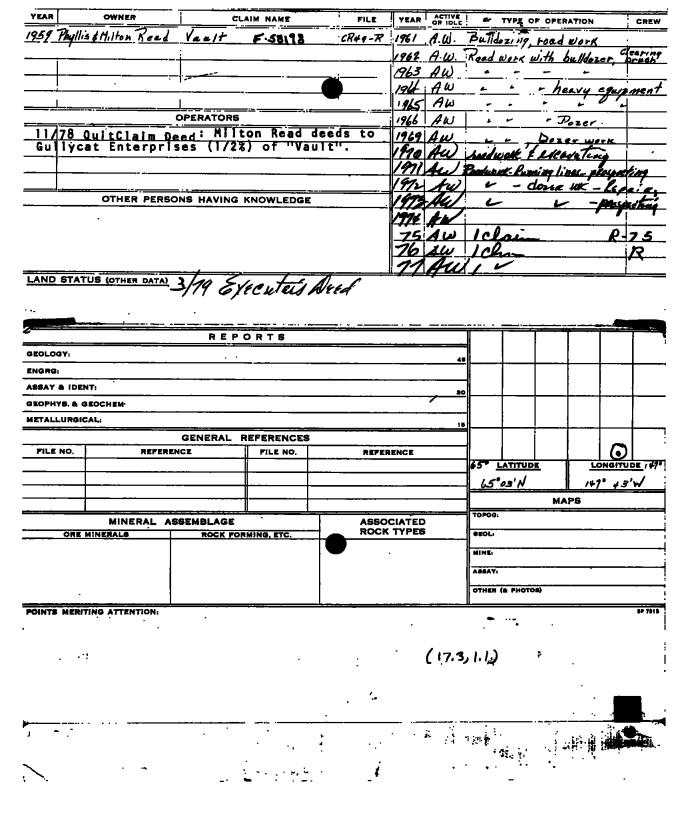 YEAR OWNER CLAIM NAME FILE
1959 Phyllis & Milton Read Vault F-58198 CR49-R
OPERATORS
11/78 QuitClaim Deed: Milton Read deeds to
Gullycat Enterprises (1/2%) of "Vault".
OTHER PERSONS HAVING KNOWLEDGE
YEAR ACTIVE OR IDLE TYPE OF OPERATION CREW
1961 A.W. Bulldozing, road work
1962 A.W. Road work with bulldozer, clearing brush
1963 AW " " "
1964 AW " " - heavy equipment
1965 AW " " " "
1966 AW " " " Dozer.
1969 AW " ", Dozer work
1970 AW roadwork & excavating
1971 AW Roadwork-Running lines-prospecting
1972 AW " - - Repairs
1973 AW " " - prospecting
1974 AW
75 AW 1 claim R-75
76 AW 1 claim R
77 AW 1 "
LAND STATUS (OTHER DATA) 3/79 Executor's Deed
REPORTS
GEOLOGY: 45
ENGRG:
ASSAY & IDENT: 30
GEOPHYS. & GEOCHEM.
METALLURGICAL: 15
GENERAL REFERENCES
FILE NO. REFERENCE FILE NO. REFERENCE
65° LATITUDE LONGITUDE 147°
65°03'N 147° 43'W
MAPS
TOPOG:
GEOL:
MINE:
ASSAY:
OTHER (& PHOTOS)
MINERAL ASSEMBLAGE
ORE MINERALS ROCK FORMING, ETC.
ASSOCIATED
ROCK TYPES
POINTS MERITING ATTENTION:
SP 7515
(17.3, 1.1)